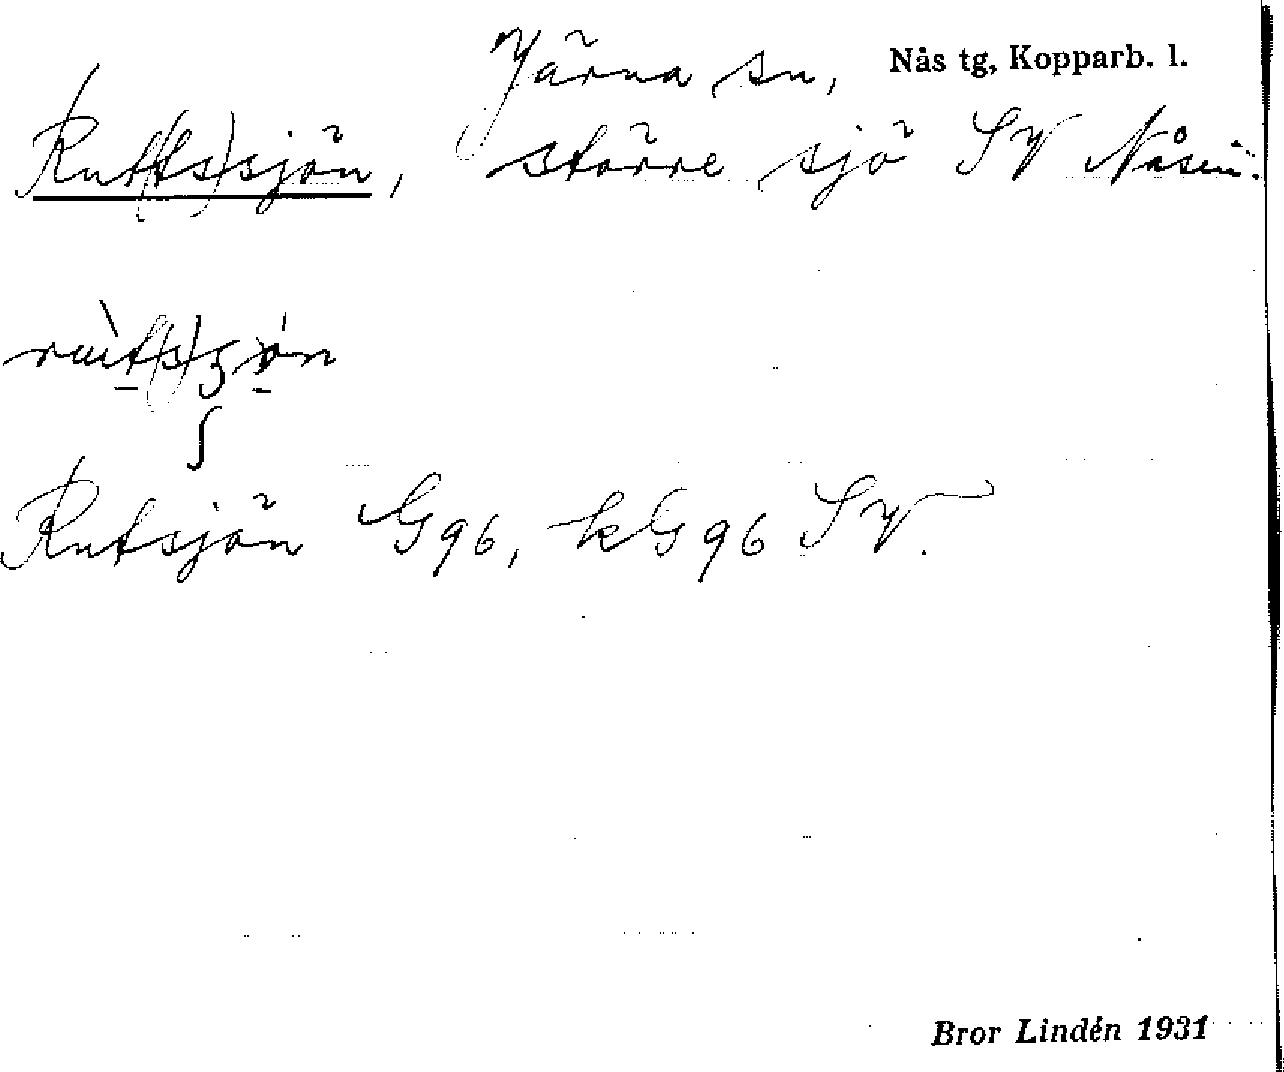 Järna sn, Nås tg, Kopparb. l.
Rut(ts)sjön, större sjö SV Nåsen.
Rutsjön G96, kG96 SV.
Bror Lindén 1931